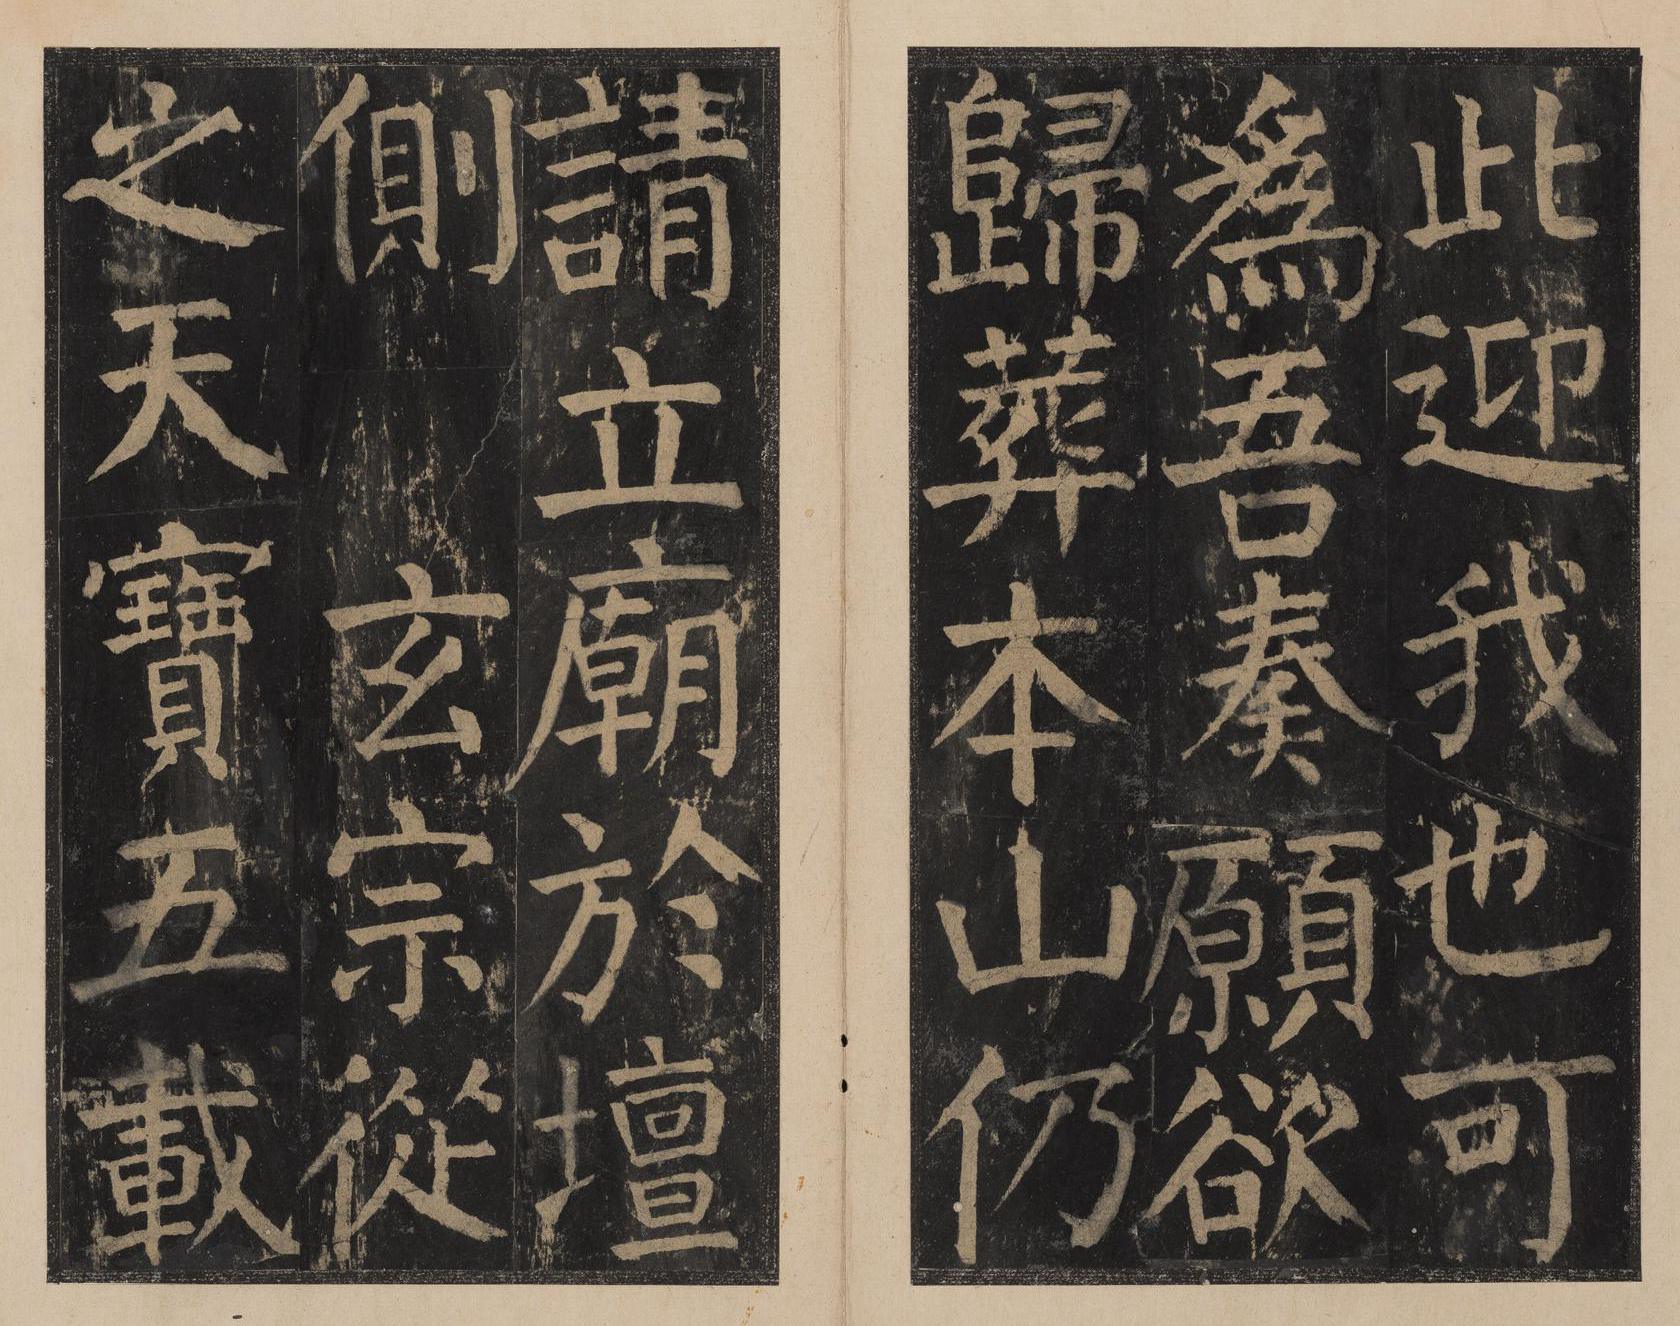 此迎我也可
爲吾奏願欲
歸葬本山仍
請立廟於壇
側玄宗從
之天寶五載